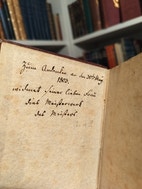 Zum Andenken an den 30ten Mai
1903.
widmet seiner lieben Frau
dies Meisterwerk
des Meisters